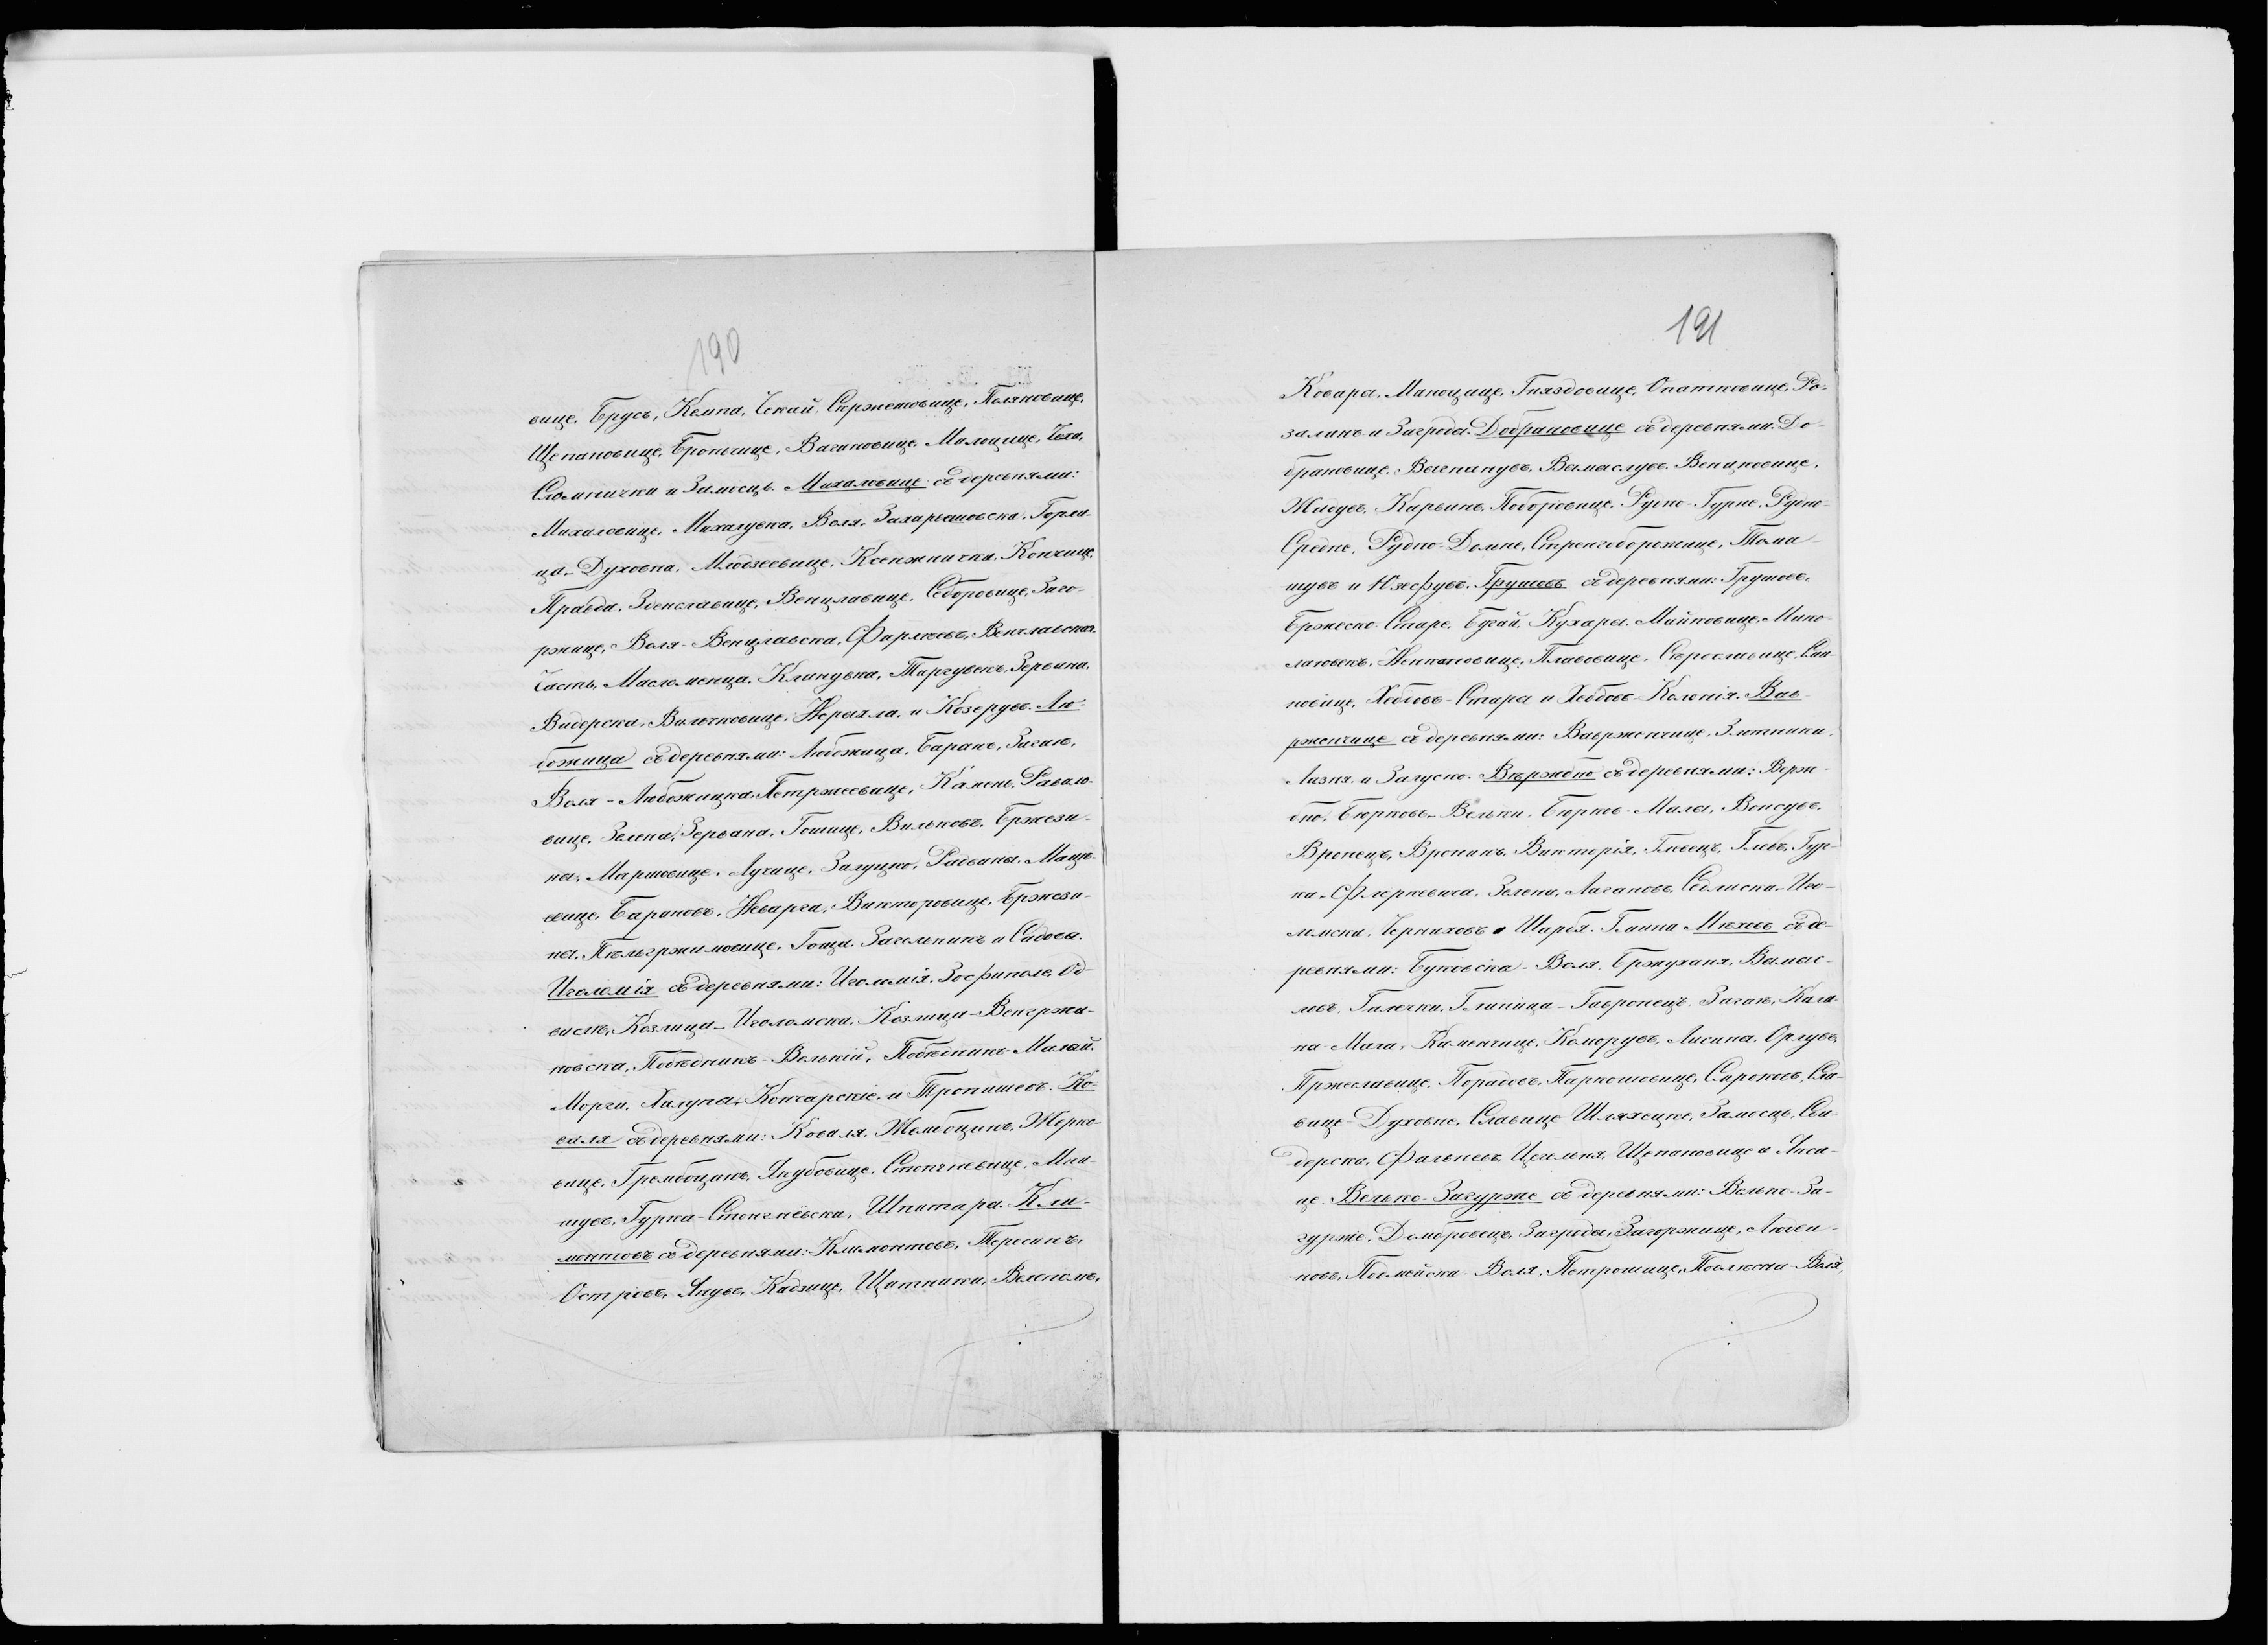 190
вице, Брусъ, Кемпа, Чекай, Сюржетовице, Поляновице,
Щепановице, Брончице, Вагановице, Милоцице, Чеха,
Сломнички и Замосць. Михаловице съ деревнями:
Михаловице, Михалувка, Воля-Захарьяшовска, Горли-
ца-Духовна, Млодзеевице, Ксенжнички, Кончице,
Правда, Здзеславице, Венцлавице, Седборовице, Заго-
ржице, Воля-Венцлавска, Фирлеевъ, Венглавская-
Часть, Масломенца, Клинувка, Таргувекъ, Зервина,
Видерска, Вильчковице, Жерыхла и Козерувъ. Лю-
божица съ деревнями: Любожица, Баране, Загаю,
Воля-Любожицка, Петржеевице, Камень, Равало-
вице, Зелена, Зервана, Гошице, Вильковъ, Бржези-
на, Маршовице, Лучице, Залуцко, Радваны, Маце-
евице, Барановъ, Жеварги, Викторовице, Бржези-
на, Пельгржимовице, Гоща, Загельникъ и Садова.
Иголомія съ деревнями: Иголомія, Зофиполе, Од-
висле, Козлица-Иголомска, Козлица-Венгржи-
новска, Побѣдникъ-Велькій, Побѣдникъ-Малый,
Морги, Халупы, Кончарскіе, и Тропишевъ. Ко-
валя съ деревнями: Коваля, Жембоцинъ, Жерко-
вице, Грембоцинъ, Якубовице, Стогневице, Мни-
шувъ, Гурка-Стогнёвска, Шпитара. Кли-
монтовъ съ деревнями: Климонтовъ, Тересинъ,
Островъ, Янувъ, Кадзице, Щитники, Веленомъ,
191
Ковары, Маноцице, Гняздовице, Опатковице, Ро-
залинъ и Загроды. Добрановице съ деревнями: До-
брановице, Вагнинувъ, Вымаслувъ, Веницковице,
Жидувъ, Карвинъ, Поборовице, Рудно-Гурне, Рудно-
Средне, Рудно-Дольне, Стренгоборжице, Тома-
шувъ и Юзефувъ. Грушовъ съ деревнями: Грушовъ,
Бржеско-Старе, Бугай, Кухары, Майковице, Мико-
лаювекъ, Женковице, Плавовице, Серославице, Сви-
новице, Хеббовъ-Стары и Хеббовъ-Колонія. Вав-
рженчице съ деревнями: Вавржентице, Злотники,
Лазня и Залуско. Вержбно съ деревнями: Верж-
бно, Бюрковъ-Вельки, Бюрковъ-Малы, Венсувъ,
Вронецъ, Вронинъ, Викторія, Глевецъ, Глевъ, Гур-
ка-Флеркевича, Зелена, Лагановъ, Седлиска-Иго-
ломска, Черниховъ и Шарбя. Гмина Мѣховъ съ де-
ревнями: Буковска-Воля, Бржуханя, Вымыс-
ловъ, Галечки, Глиница-Гавронецъ, Загаю, Кали-
на-Мала, Каменчице, Коморувъ, Лисина, Орлувъ,
Пржеславице, Порадовъ, Паркошовице, Сироковъ, Сла-
вице-Духовне, Славице-Шляхецке, Замосць, Сви-
дерска, Фалькевъ, Цегельня, Щепановице и Якси-
це. Велько-Загурже съ деревнями: Велько-За-
гурже, Домбровецъ, Загроды, Загоржице, Людви-
новъ, Подмейска-Воля, Петрошице, Поблюска-Воля,